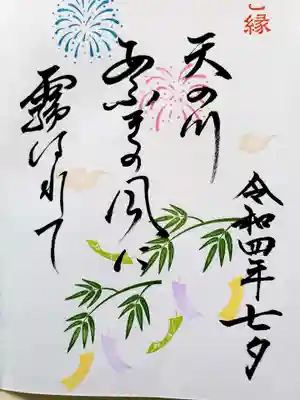 ご縁
令和四年七夕
天の川
あふきの風に
霧はれて